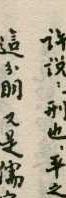 許說：刑也，平之
這分明又是儒家